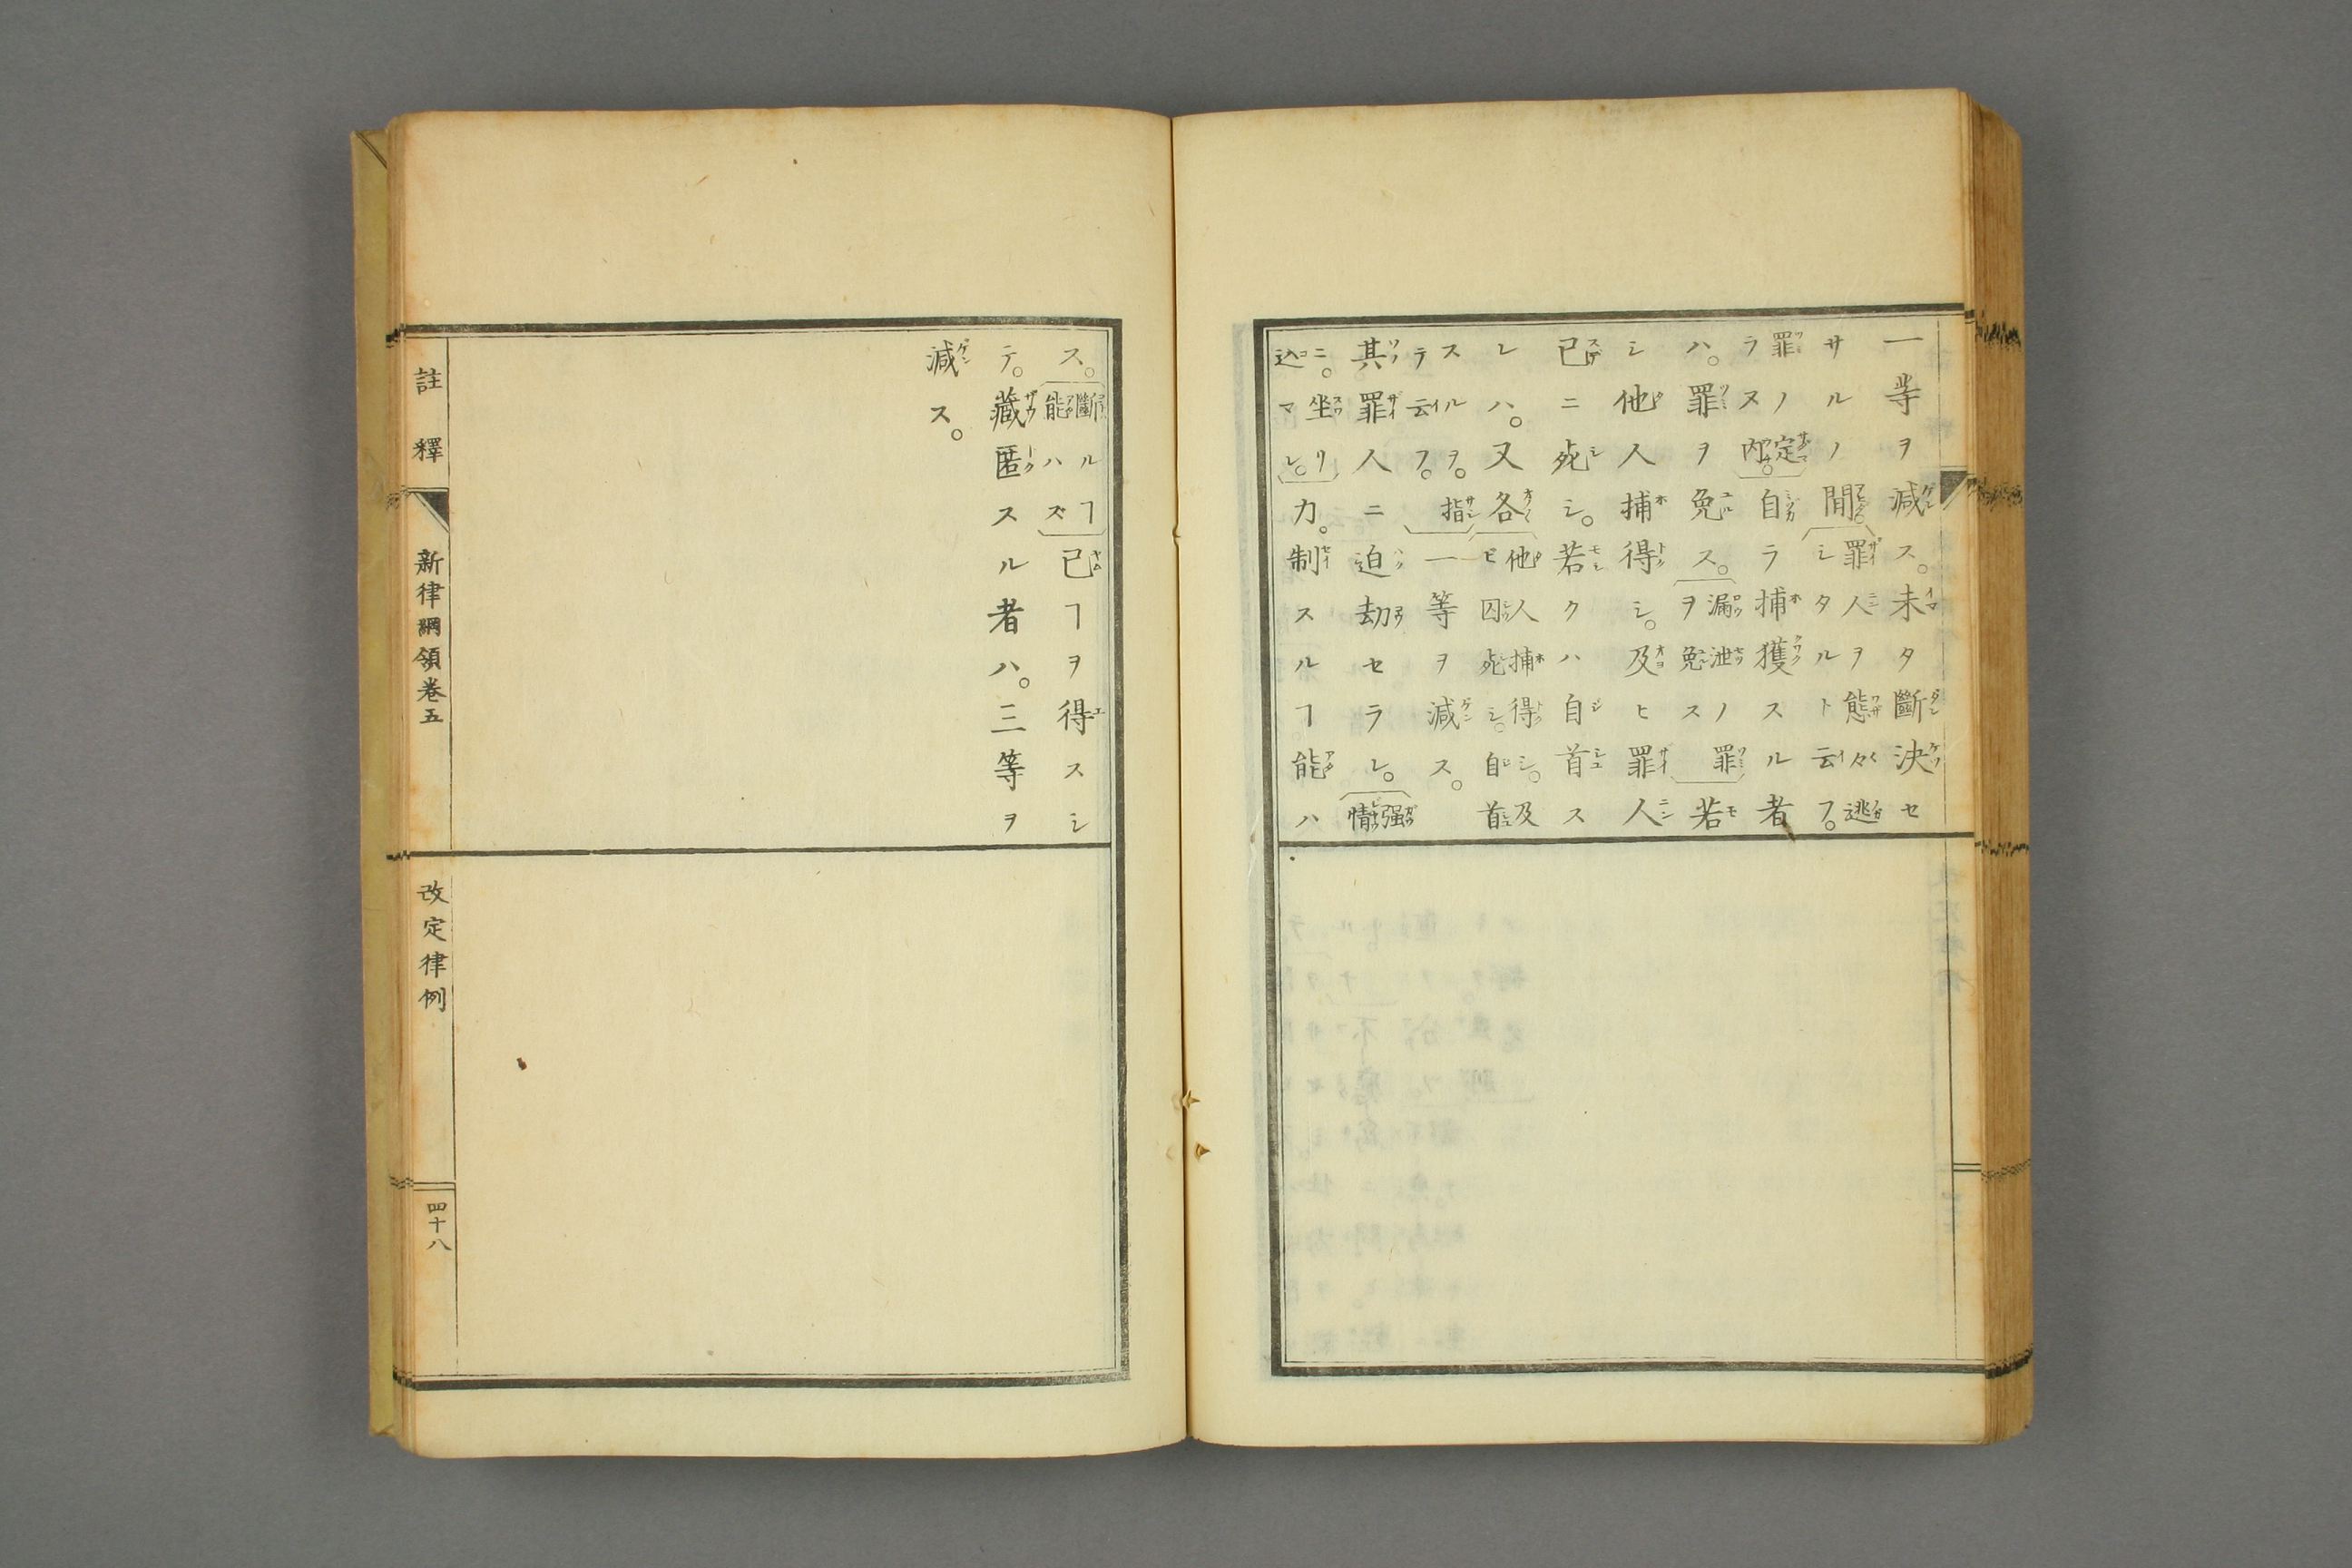 一等ヲ減ス。未タ斷決セ
サルノ間。罪人ヲ態々逃
シタルト云フ。
罪ノ定
ラヌ內。自ラ捕獲スル者
ハ。罪ヲ免ス。漏泄ノ罪
ヲ免ス若
シ他人捕得シ。及ヒ罪人
已ニ死シ。若クハ自首ス
レハ。又各他人捕得シ。及
ヒ囚死シ。自首
スルヲ。指
テ云フ。一等ヲ減ス。
其罪人ニ迫劫セラレ。强
情
ニ。坐リ
込マレ。力。制スルヿ能ハ
ス。斷ルヿ
能ハズ已ヿヲ得スシ
テ。藏匿スル者ハ。三等ヲ
減ス。
註釋 新律綱領卷五 改定律例 四十八